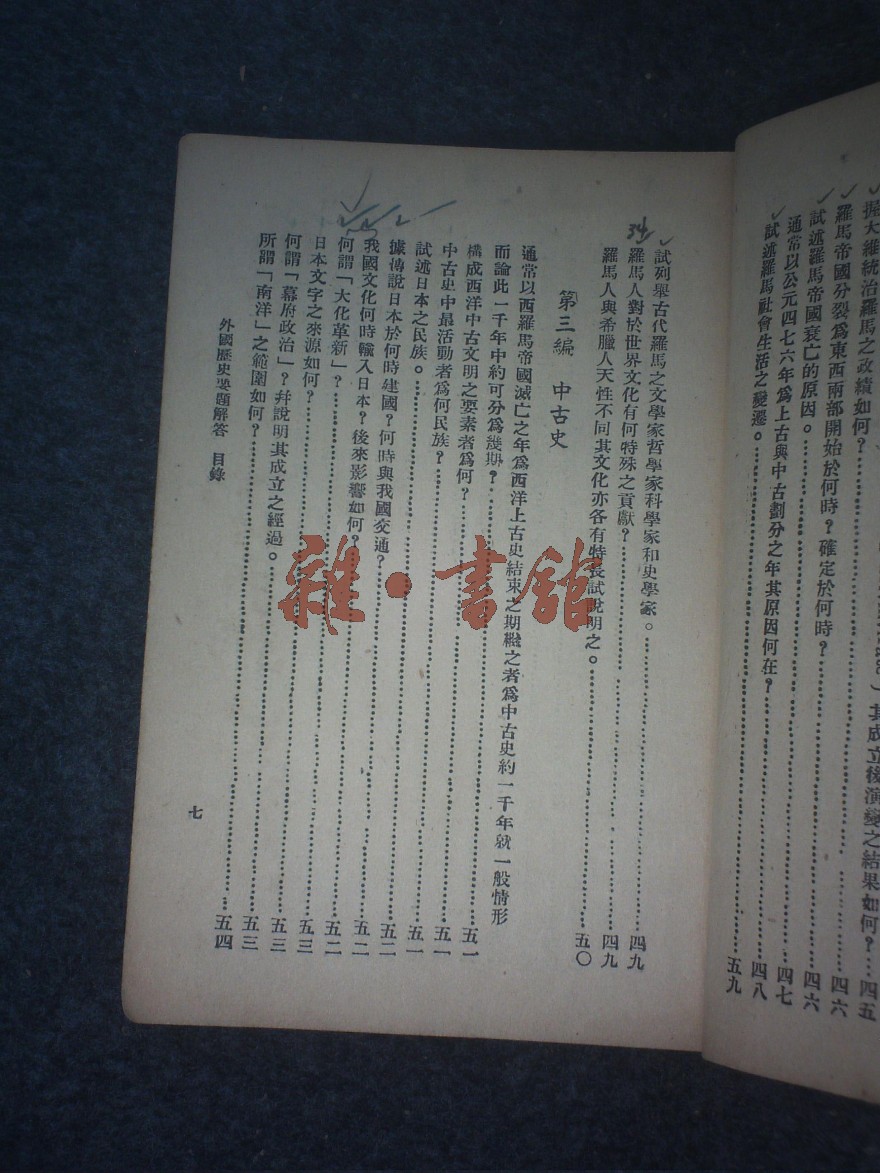 其成立後演變之結果如何？……四五
握大維統治羅馬之政績如何？
羅馬帝國分裂爲東西兩部開始於何時？確定於何時？……四六
試述羅馬帝國衰亡的原因。……四六
通常以公元四七六年爲上古與中古劃分之年其原因何在？……四七
試述羅馬社會生活之變遷。……四八
五九
試列舉古代羅馬之文學家哲學家科學家和史學家。……四九
羅馬人對於世界文化有何特殊之貢獻？……四九
羅馬人與希臘人天性不同其文化亦各有特長試說明之。……五〇
第三編　中古史
通常以西羅馬帝國滅亡之年爲西洋上古史結束之期繼之者爲中古史約一千年就一般情形
而論此一千年中約可分爲幾期？……五一
構成西洋中古文明之要素者爲何？……五一
中古史中最活動者爲何民族？……五一
試述日本之民族。……五一
據傳說日本於何時建國？何時與我國交通？……五二
我國文化何時輸入日本？後來影響如何？……五二
何謂「大化革新」？……五二
日本文字之來源如何？……五三
何謂「幕府政治」？幷說明其成立之經過。……五三
所謂「南洋」之範圍如何？……五四
外國歷史要題解答　目錄
七
雜·書館